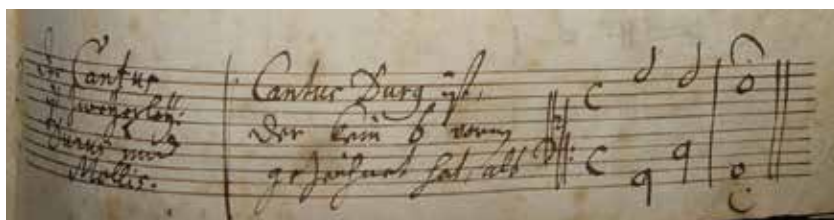 Der Cantus
ist zweyerley:
Durus und
Mollis.
Cantus Durꝰ ist,
Der kein b vorn
gezeichnet hat, als